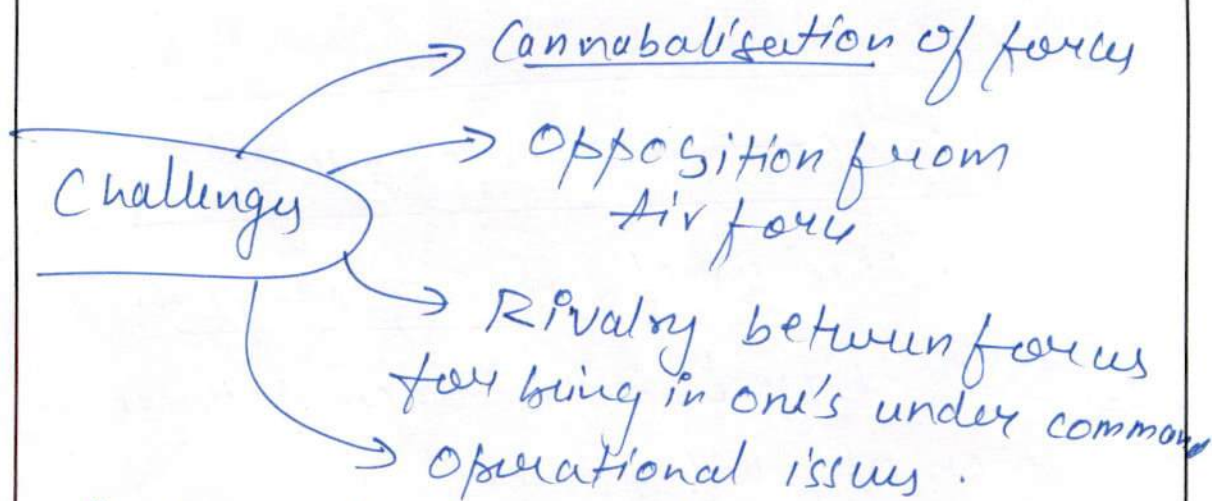 Cannabalisation of forces
Opposition from
Air force
Challenges
Rivalry between forces
for being in one's under command
Operational issues.